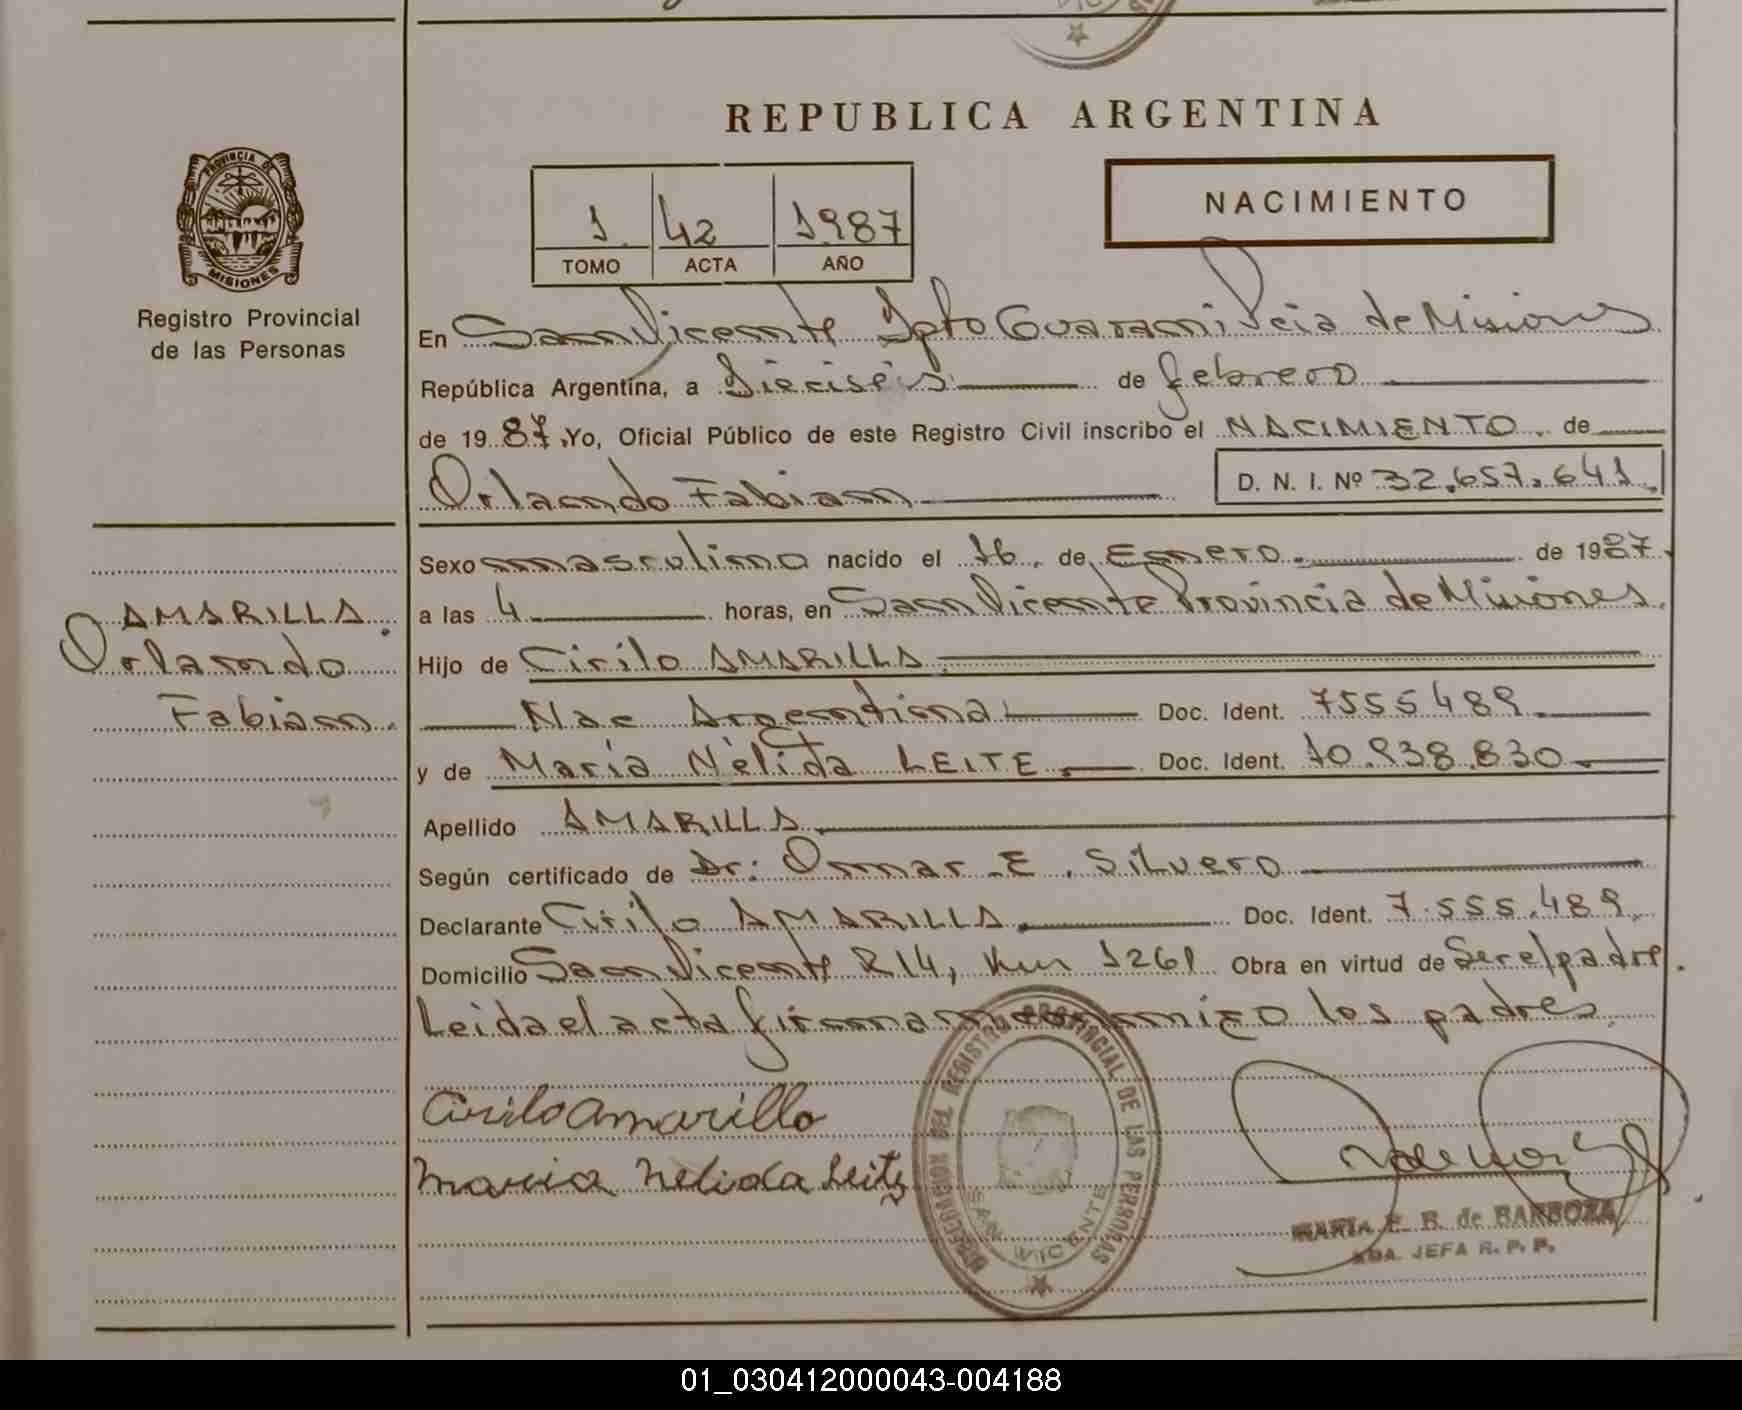 REPUBLICA ARGENTINA
PROVINCIA DE
MISIONES
Registro Provincial
de las Personas
1 42 1987
TOMO ACTA AÑO
NACIMIENTO
En San Vicente Dpto Guarani Pcia de Misiones
República Argentina, a Dieciséis de febrero
de 1987. Yo, Oficial Público de este Registro Civil inscribo el NACIMIENTO de
Orlando Fabian D. N. I. Nº 32.657.641.
Sexo masculino nacido el 16 de Enero de 1987.
a las 4 horas, en San Vicente Provincia de Misiones.
Hijo de Cirilo AMARILLA
Nac Argentina Doc. Ident. 7555489
y de Maria Nélida LEITE Doc. Ident. 10.938.830
Apellido AMARILLA
Según certificado de Dr. Omar E. Silvero
Declarante Cirilo AMARILLA Doc. Ident. 7.555.489
Domicilio San Vicente R 14, Km 1261 Obra en virtud de Ser el padre.
Leida el acta firman conmigo los padres.
AMARILLA.
Orlando
Fabian.
Cirilo Amarillo
Maria Nelida Leite
DEL REGISTRO PROVINCIAL DE LAS PERSONAS
SAN VICENTE
MARIA E. R. de BARBOZA
JEFA R. P. P.
01_030412000043-004188